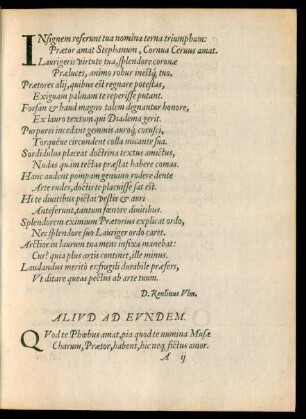 INsignem referunt tua nomina terna triumphum:
Prætor amat Stephanum, Cornua Ceruus amat.
Laurigeris virtute tua, splendore coronæ
Præluces, animo robur inestq́; tuo.
Prætores alij, quibus est regnare potestas,
Exiguam palmam te reperisse putant.
Forsan & haud magno talem dignantur honore,
Ex lauro textum qui Diadema gerit.
Purpurei incedant gemmis auroq́; corusci,
Torquéue circundent colla micante sua.
Sordidulus placeat doctrina textus amictus,
Nudas quàm tectas præstat habere comas.
Hanc audent pompam genuino rudere dente
Arte rudes, doctis te placuisse sat est.
Hi te diuitibus pictat vestis & auri
Anteferunt, tantum fœnore diuitibus.
Splendorem eximium Prætorius explicat ordo,
Nec splendore suo Lauriger ordo caret.
Arctior in laurum tua mens infixa manebat:
Cur? quia plus artis continet, ille minus.
Laudandus meritò es: fragili durabile præfers,
Vt ditare queas pectus ab arte tuum.
D. Reuslinus Vlm.
ALIVD AD EVNDEM.
QVod te Phœbus amat, pia quod te numina Musæ
Charum, Prætor, habent, hic neq; fictus amor.
A ij